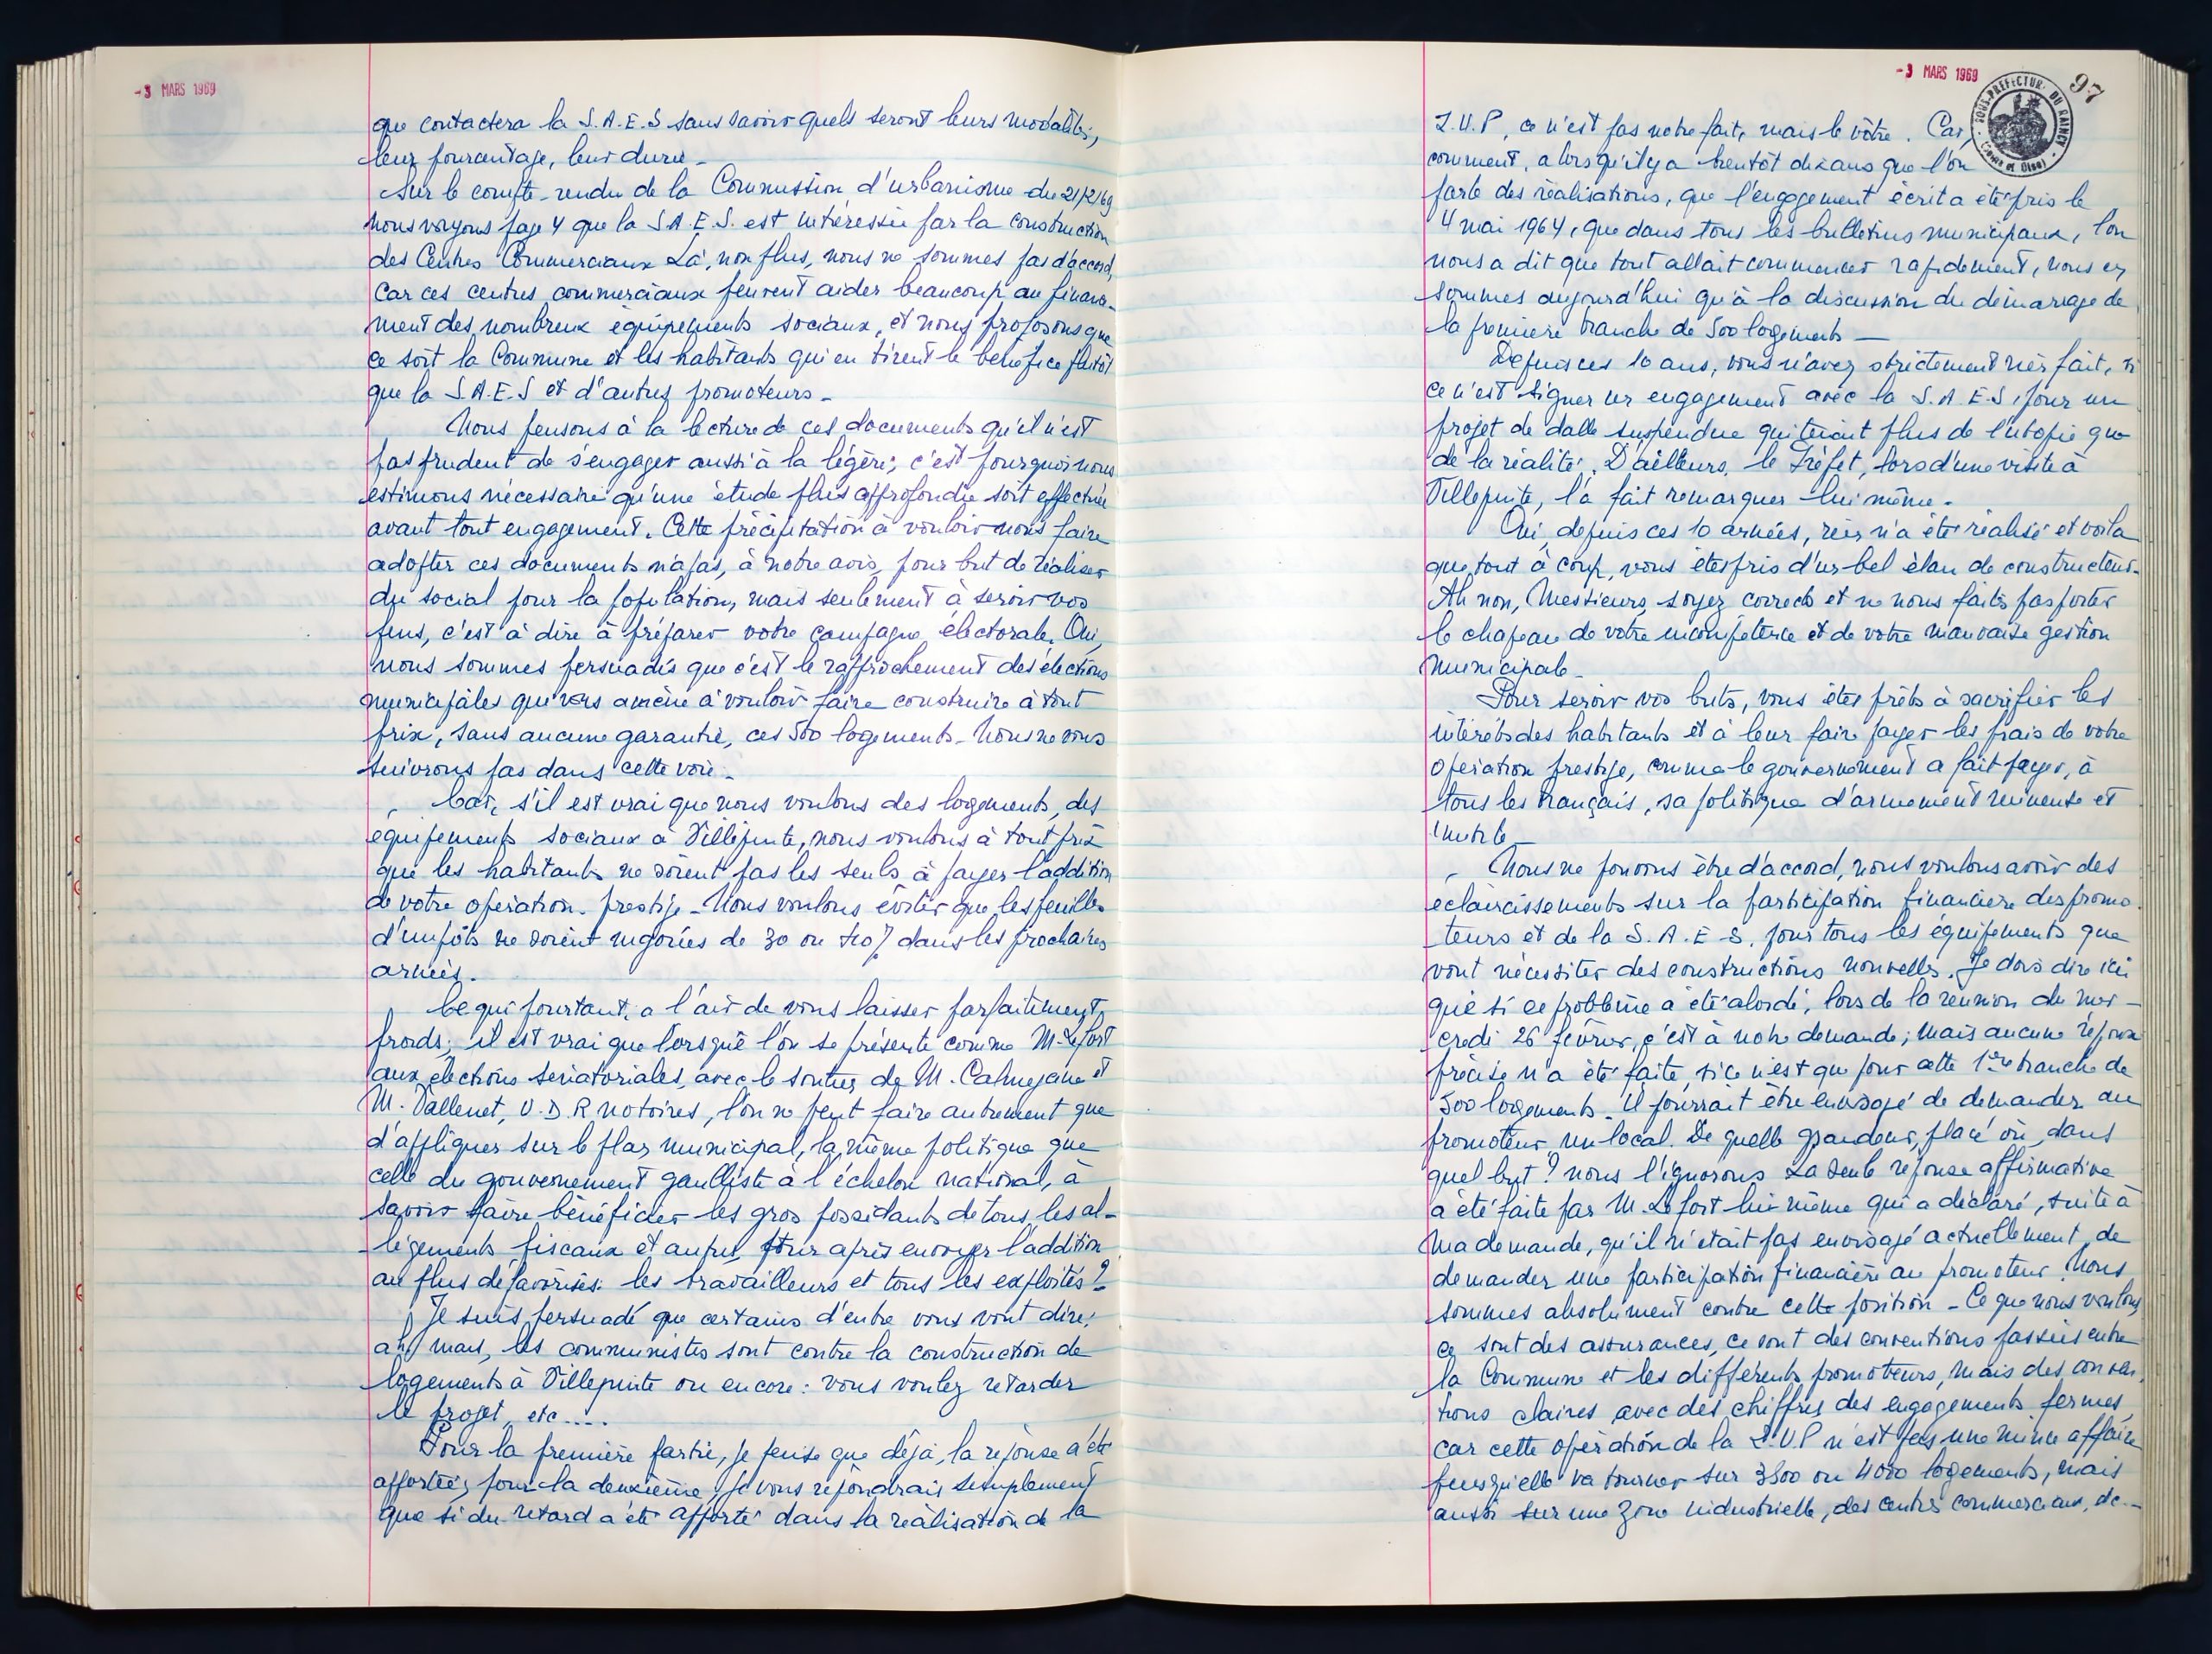 -3 MARS 1969
que contactera la S.A.E.S sans savoir quels seront leurs modalités,
leur pourcentage, leur durée -
Sur le compte-rendu de la Commission d'urbanisme du 21/2/69
nous voyons page 4 que la S.A.E.S. est intéressée par la construction
des Centres Commerciaux Là, non plus, nous ne sommes pas d'accord,
car ces centres commerciaux peuvent aider beaucoup au finance-
ment des nombreux équipements sociaux, et nous proposons que
ce soit la Commune et les habitants qui en tirent le bénéfice plutôt
que la S.A.E.S et d'autres promoteurs -
Nous pensons à la lecture de ces documents qu'il n'est
pas prudent de s'engager aussi à la légère; c'est pourquoi nous
estimons nécessaire qu'une étude plus approfondie soit effectuée
avant tout engagement. Cette précipitation à vouloir nous faire
adopter ces documents n'a pas, à notre avis, pour but de réaliser
du social pour la population, mais seulement à servir vos
fins, c'est à dire à préparer votre campagne électorale. Oui,
nous sommes persuadés que c'est le rapprochement des élections
municipales qui vous amène à vouloir faire construire à tout
prix, sans aucune garantie, ces 500 logements - Nous ne vous
suivrons pas dans cette voie -
Car, s'il est vrai que nous voulons des logements, des
équipements sociaux à Villepinte, nous voulons à tout prix
que les habitants ne soient pas les seuls à payer l'addition
de votre opération - prestige - Nous voulons éviter que les feuilles
d'impôts ne soient majorées de 30 ou 40% dans les prochaines
années.
Ce qui pourtant, a l'air de vous laisser parfaitement
froids; il est vrai que lorsque l'on se présente comme M. Lefort
aux élections sénatoriales, avec le soutien de M. Calmejane et
M. Vallenet, U.D.R notoires, l'on ne peut faire autrement que
d'appliquer sur le plan municipal, la même politique que
celle du gouvernement gaulliste à l'échelon national, à
savoir faire bénéficier les gros possédants de tous les al-
légements fiscaux et autres, pour après envoyer l'addition
au plus défavorisés: les travailleurs et tous les exploités? -
Je suis persuadé que certains d'entre vous vont dire;
ah! mais, les communistes sont contre la construction de
logements à Villepinte ou encore: vous voulez retarder
le projet, etc....
Pour la première partie, je pense que déjà, la réponse a été
apportée; pour la deuxième, je vous répondrais simplement
que si du retard a été apporté dans la réalisation de la
-3 MARS 1969
SOUS-PREFECTURE DU RAINCY
(Seine et Oise)
97
Z.U.P, ce n'est pas notre fait, mais le vôtre. Car,
comment, alors qu'il y a bientôt dix ans que l'on
parle des réalisations, que l'engagement écrit a été pris le
4 mai 1964, que dans tous les bulletins municipaux, l'on
nous a dit que tout allait commencer rapidement, nous en
sommes aujourd'hui qu'à la discussion du démarrage de
la première tranche de 500 logements —
Depuis ces 10 ans, vous n'avez strictement rien fait, si
ce n'est signer un engagement avec la S.A.E.S, pour un
projet de dalle suspendue qui tenait plus de l'utopie que
de la réalité. D'ailleurs, le Préfet, lors d'une visite à
Villepinte, l'a fait remarquer lui même -
Oui, depuis ces 10 années, rien n'a été réalisé et voilà
que, tout à coup, vous êtes pris d'un bel élan de constructeurs.
Ah non, Messieurs, soyez corrects et ne nous faites pas porter
le chapeau de votre incompétence et de votre mauvaise gestion
municipale -
Pour servir vos buts, vous êtes prêts à sacrifier les
intérêts des habitants et à leur faire payer les frais de votre
opération prestige, comme le gouvernement a fait payer, à
tous les Français, sa politique d'armement et
inutile -
Nous ne pouvons être d'accord, nous voulons avoir des
éclaircissements sur la participation financière des promo-
teurs et de la S.A.E.S. pour tous les équipements que
vont nécessiter des constructions nouvelles. Je dois dire ici
que si ce problème a été abordé, lors de la réunion du mer-
credi 26 février, c'est à notre demande; mais aucune réponse
précise n'a été faite, si ce n'est que pour cette 1ère tranche de
500 logements. Il pourrait être envisagé de demander au
promoteur, un local. De quelle grandeur, placé où, dans
quel but? nous l'ignorons La seule réponse affirmative
a été faite par M. Lefort lui-même qui a déclaré, suite à
ma demande, qu'il n'était pas envisagé actuellement, de
demander une participation financière au promoteur. Nous
sommes absolument contre cette position - Ce que nous voulons,
ce sont des assurances, ce sont des conventions passées entre
la Commune et les différents promoteurs, mais des conven-
tions claires avec des chiffres des engagements fermes,
car cette opération de la Z.U.P n'est pas une mince affaire
puisqu'elle va tourner sur 3500 ou 4000 logements, mais
aussi sur une zone industrielle, des centres commerciaux, etc. -